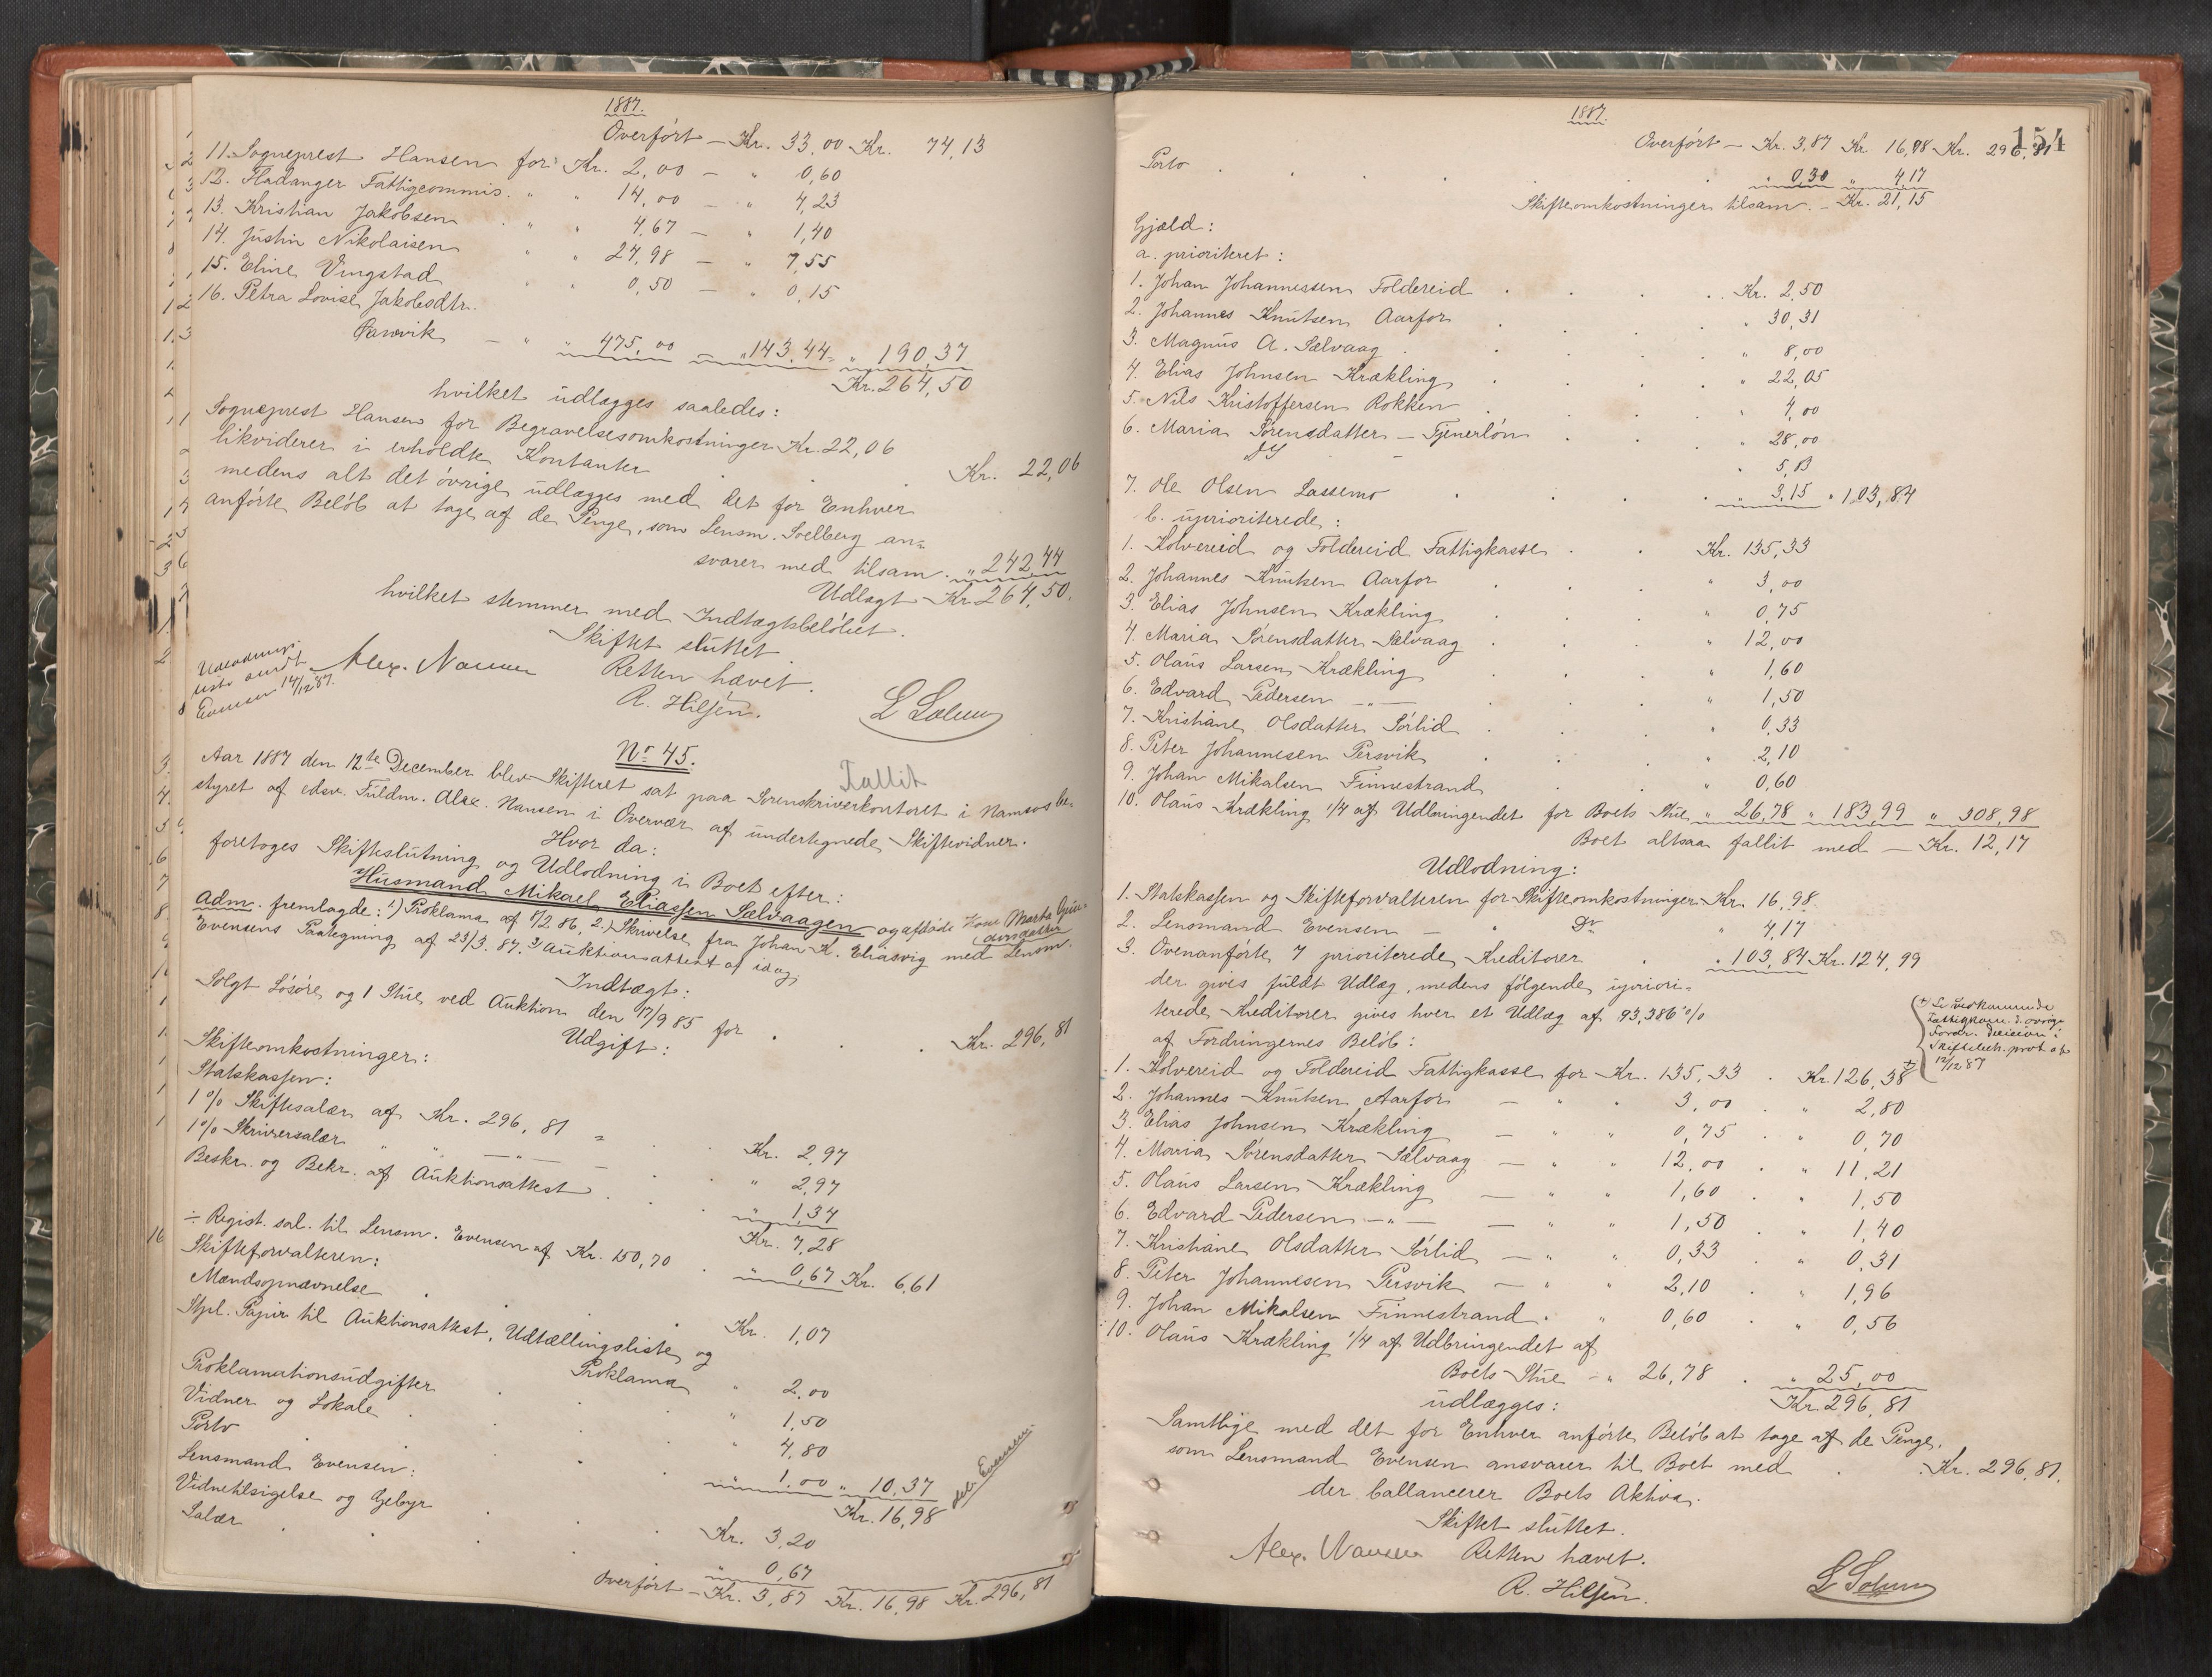 1887.
Overført — Kr. 33,00 Kr. 74,13
11. Sogneprest Hansen for Kr. 2,00 — " 0,60
12. Fladanger Fattigcommis. " " 14,00 — " 4,23
13. Kristian Jakobsen " " 4,67 — " 1,40
14. Justin Nikolaisen " " 24,98 — " 7,55
15. Eline Vingstad " " 0,50 — " 0,15
16. Petra Lovise Jakobsdtr.
— " " 475,00 — " 143,44 = " 190,37
Kr. 264,50
hvilket udlægges saaledes:
Sogneprest Hansen for Begravelsesomkostninger Kr. 22,06
likviderer i erholdte Kontanter . . Kr. 22,06
medens alt det øvrige udlægges med det for Enhver
anførte Beløb at tage af de Penge, som Lensm. Soelberg an-
svarer med tilsam. " 242,44
Udlagt Kr. 264,50.
hvilket stemmer med Indtægtsbeløbet.
Skiftet sluttet
Retten hævet.
Alex. Nansen
R. Hiljen.
L Solum
Udlodnings-
liste sendt
Evensen 14/12 87.
No 45.
Fallit
Aar 1887 den 12te December blev Skifteret sat paa Sorenskriverkontoret i Namsos be-
styret af edsv. Fuldm. Alex. Nansen i Overvær af undertegnede Skiftevidner.
Hvor da:
foretoges Skifteslutning og Udlodning i Boet efter:
Husmand Mikael Eliassen Sælvaagen og afdøde Kone Marta
Adm. fremlagde: 1) Proklama af 1/2 86, 2) Skrivelse fra Johan K. Eliasvig med Lensm.
Evensens Paategning af 23/3. 87. 3) Auktionsattest af idag
Indtægt:
Solgt Løsøre og 1 Stue ved Auktion den 17/9 85 for . . Kr. 296,81
Udgift:
Skifteomkostninger:
Statskassen:
1 % Skiftesalær af Kr. 296,81 = . Kr. 2,97
1 % Skriversalær " " — " — . " 2,97
Beskr. og Bekr. af Auktionsattest . . " 1,34
Kr. 7,28
÷ Regist. sal. til Lensm. Evensen af Kr. 150,70 . " 0,67 Kr. 6,61
Skifteforvalteren:
Mandsopnævnelse . . Kr. 1,07
Stpl. Papir til Auktionsattest, Udtællingsliste og
Proklama " 2,00
Proklamationsudgifter . " 1,50
Vidner og Lokale . . " 4,80
Porto . . " 1,00 " 10,37
Kr. 16,98
Lensmand Evensen:
Vidnetilsigelse og Gebyr . . Kr. 3,20
Salær . . " 0,67
Overført — Kr. 3,87 Kr. 16,98 Kr. 296,81
154
1887.
Overført — Kr. 3,87 Kr 16,98 Kr. 296,81
Porto . . . . " 0,30 " 4,17
Skifteomkostninger tilsam. — Kr. 21,15
Gjæld:
a. prioriteret:
1. Johan Johannessen Foldereid . . . Kr. 2,50
2. Johannes Knutsen Aarfor . . . " 30,31
3. Magnus A. Sælvaag . . . " 8,00
4. Elias Johnsen Krækling . . . " 22,05
5. Nils Kristoffersen Rokken . . . " 4,00
6. Maria Sørensdatter — Tjenerløn . . " 28,00
" 5,83
7. Ole Olsen Lassemo . . . " 3,15 " 103,84
b. uprioriterede:
1. Kolvereid og Foldereid Fattigkasse . . Kr. 135,33
2. Johannes Knutsen Aarfor . . " 3,00
3. Elias Johnsen Krækling . . " 0,75
4. Maria Sørensdatter Sælvaag . . " 12,00
5. Olaus Larsen Krækling . . " 1,60
6. Edvard Pedersen — " — . . " 1,50
7. Kristiane Olsdatter Sørlid . . " 0,33
8. Peter Johannesen Persvik . . " 2,10
9. Johan Mikalsen Finnestrand . . " 0,60
10. Olaus Krækling 1/4 af Udbringendet for Boets Stue " 26,78 " 183,99 " 308,98
Boet altsaa fallit med — Kr. 12,17
Udlodning:
1. Statskassen og Skifteforvalteren for Skifteomkostninger Kr. 16,98.
2. Lensmand Evensen — " Do " 4,17
3. Ovenanførte 7 prioriterede Kreditorer . " 103,84 Kr. 124,99
der gives fuldt Udlæg, medens følgende upriori-
terede Kreditorer gives hver et Udlæg af 93,386 %
af Fordringernes Beløb:
1. Kolvereid og Foldereid Fattigkasse for Kr. 135,33 . Kr. 126,38 +
2. Johannes Knutsen Aarfor — " " 3,00 . " 2,80
3. Elias Johnsen Krækling — " " 0,75 . " 0,70
4. Maria Sørensdatter Sælvaag — " " 12,00 . " 11,21
5. Olaus Larsen Krækling — " " 1,60 . " 1,50
6. Edvard Pedersen — " — — " " 1,50 . " 1,40
7. Kristiane Olsdatter Sørlid — " " 0,33 . " 0,31
8. Peter Johannesen Persvik — " " 2,10 . " 1,96
9. Johan Mikalsen Finnestrand . " 0,60 . " 0,56
10. Olaus Krækling 1/4 af Udbringendet af
Boets Stue — " 26,78 . " 25,00
udlægges: Kr. 296,81
Samtlige med det for Enhver anførte Beløb at tage af de Penge,
som Lensmand Evensen ansvarer til Boet med . . Kr. 296,81.
der ballancerer Boets Aktiva.
Skiftet sluttet.
Alex. Nansen Retten hævet.
R. Hiljen.
L Solum
+ Se vedkommende
Fattigkom. d. øvrige
Fordr. decision i
Skiftebeh. prot. af
12/12 87